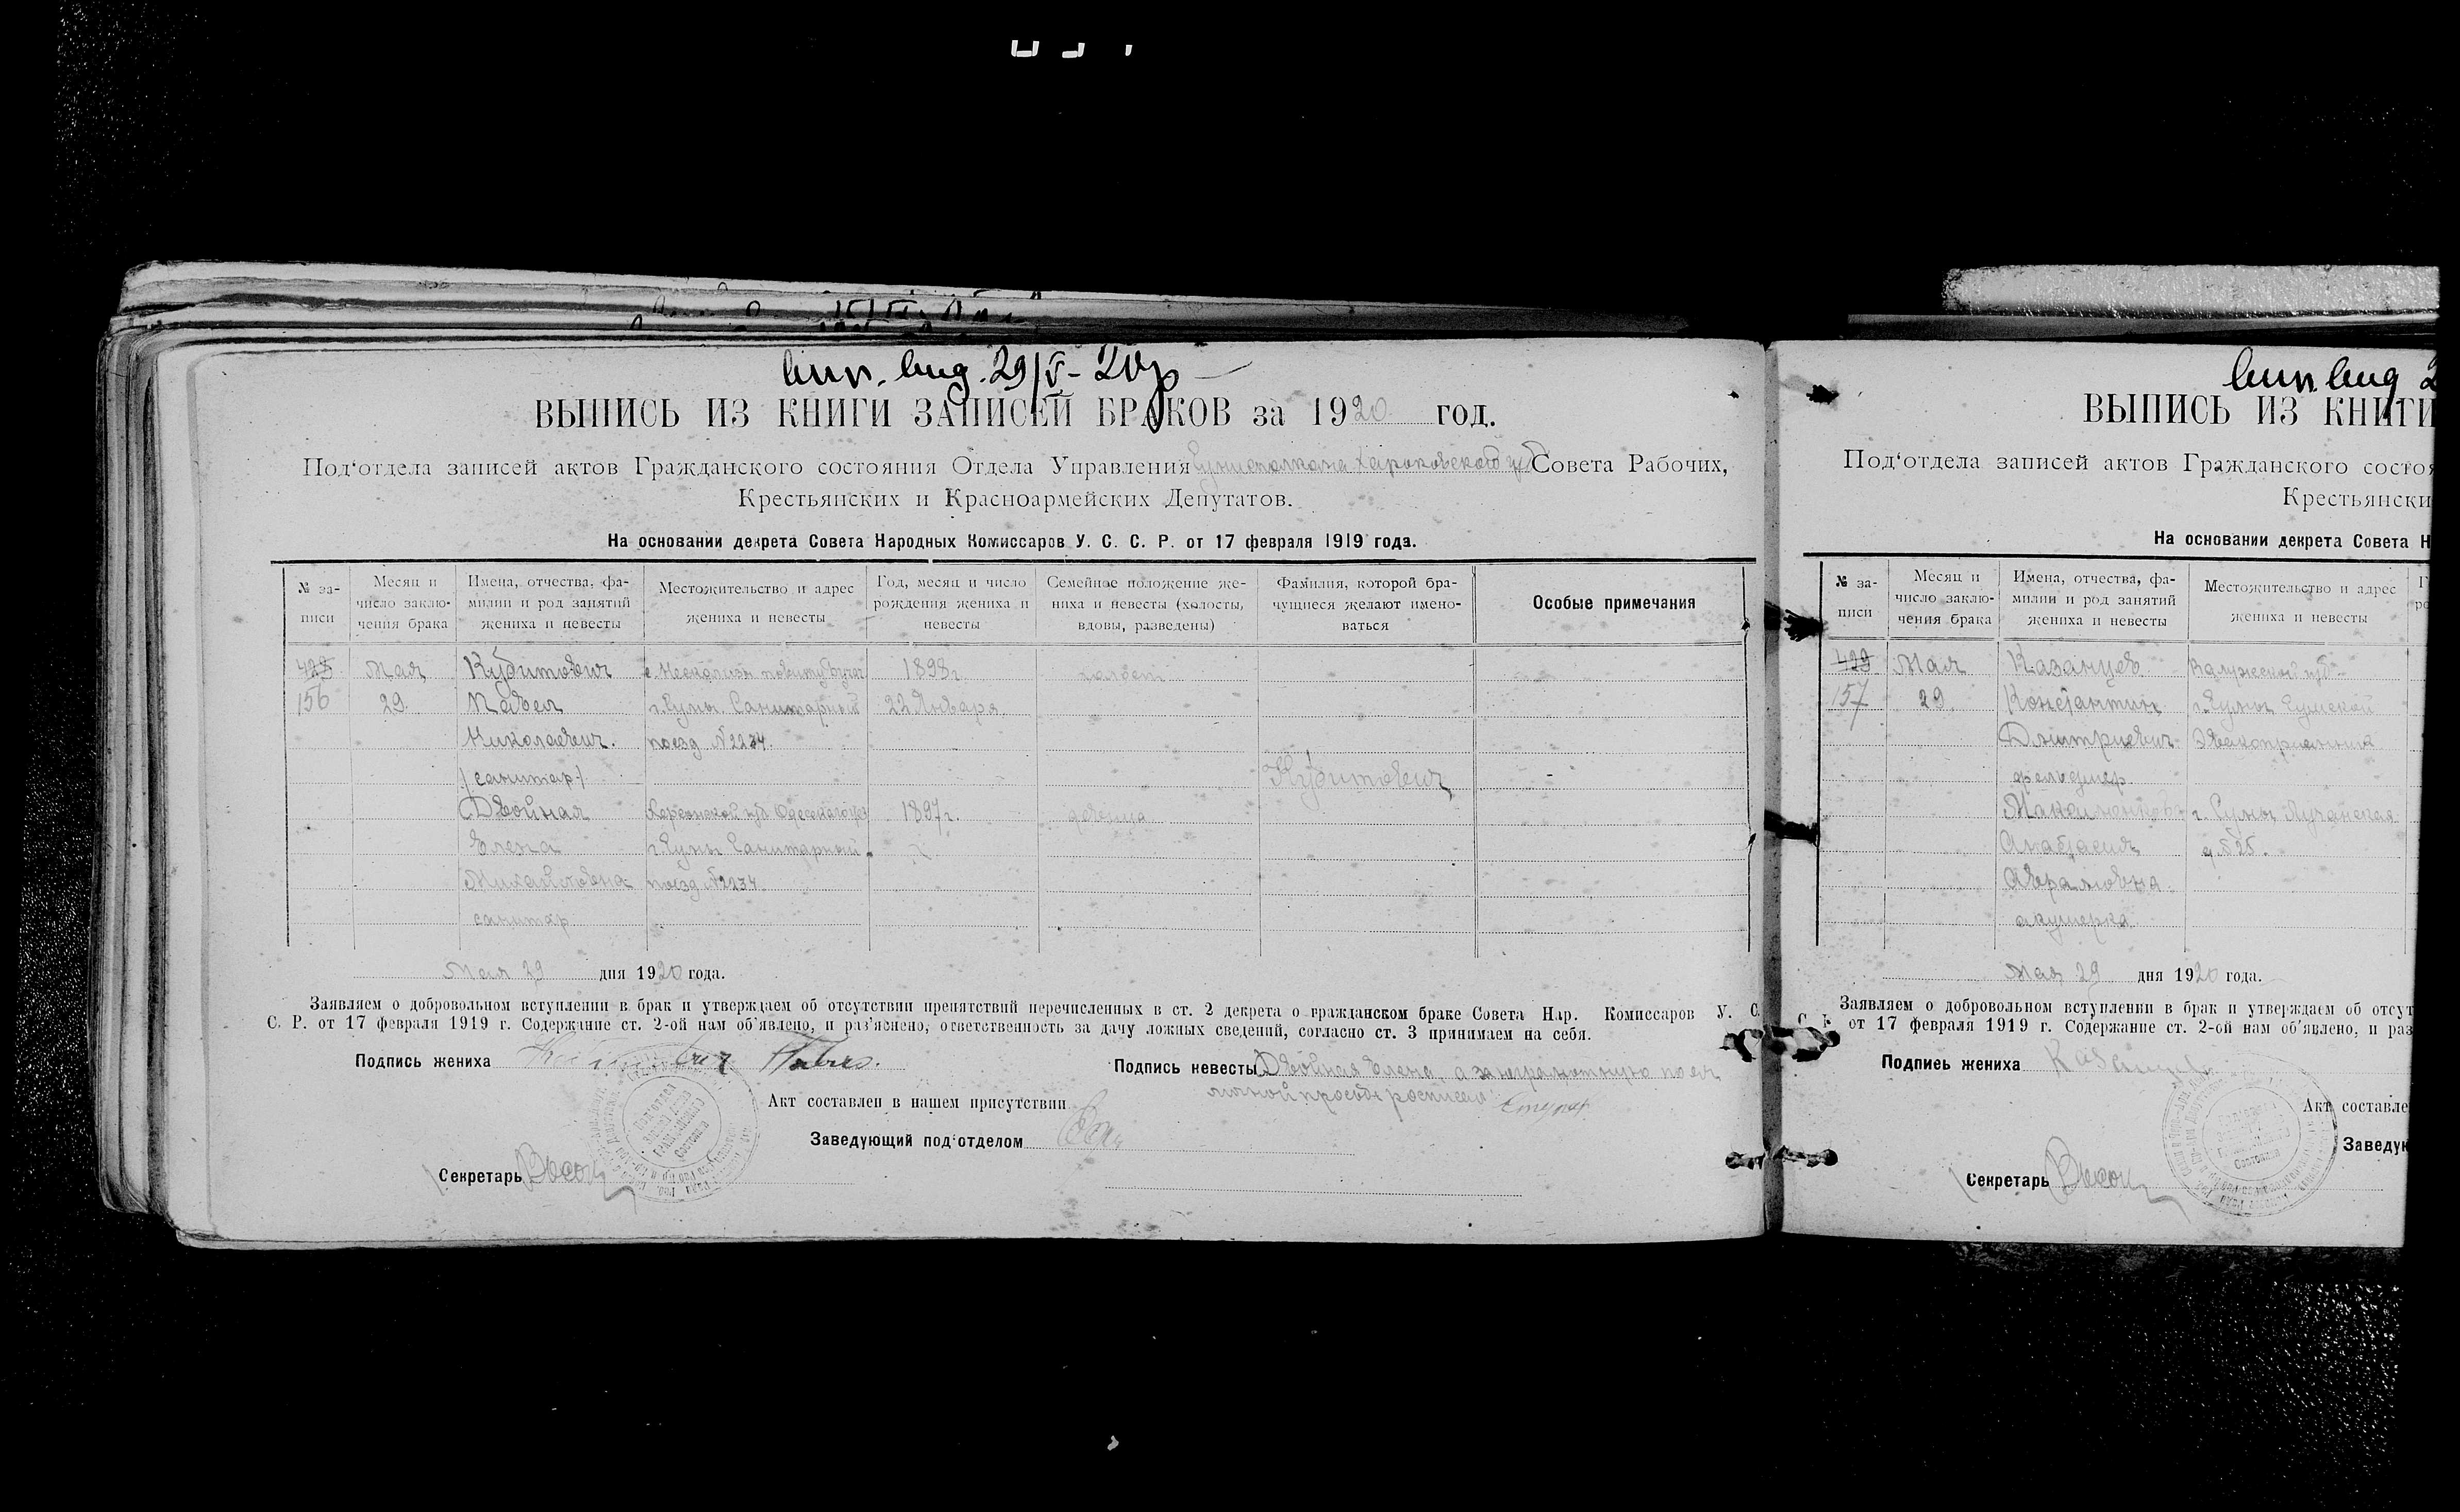 29/V - 20р
ВЫПИСЬ ИЗ КНИГИ ЗАПИСЕЙ БРАКОВ за 1920 год.
Под‘отдела записей актов Гражданского состояния Отдела Управления Харьковской Совета Рабочих,
Крестьянских и Красноармейских Депутатов.
На основании декрета Совета Народных Комиссаров У. С. С. Р. от 17 февраля 1919 года.
№ за-писи
Месяц и число заклю-чения брака
Имена, отчества, фа-милии и род занятий жениха и невесты
Местожительство и адрес жениха и невесты
Год, месяц и число рождения жениха и невесты
Семейное положение же-ниха и невесты (холосты, вдовы, разведены)
Фамилия, которой бра-чущиеся желают имено-ваться
Особые примечания
428 Мая Кубитович 1898г. холост
156 29. Павел г. Сумы Санитарный 22 Января
Николаевич. поезд №2234.
/санитар/ Кубитович -
Двойная Херсонской губ Одесского у 1897г. девица
Елена г. Сумы Санитарный
Михайловна поезд №2234
санитар
Мая 29 дня 1920 года.
Заявляем о добровольном вступлении в брак и утверждаем об отсутствии препятствий перечисленных в ст. 2 декрета о гражданском браке Совета Нар. Комиссаров У. С.
С. Р. от 17 февраля 1919 г. Содержание ст. 2-ой нам об‘явлено, и раз‘яснено, ответственность за дачу ложных сведений, согласно ст. 3 принимаем на себя.
Подпись жениха Павел. Подпись невесты Двойная Елена, а за неграмотную по ея
личной просьбе росписался
Акт составлен в нашем присутствии
Заведующий под‘отделом
Секретарь
ВЫПИСЬ ИЗ КНИГИ
Под‘отдела записей актов Гражданского состоя
Крестьянски
На основании декрета Совета Н
№ за-писи
Месяц и число заклю-чения брака
Имена, отчества, фа-милии и род занятий жениха и невесты
Местожительство и адрес жениха и невесты
429 Мая Казанцев Калужской губ
157 29. Константин г. Сумы Сумской
Дмитриевич Эвакоприемник
фельдшер
г. Сумы Лучанская
Анастасия д. №25.
Авраамовна
акушерка
Мая 29 дня 1920 года.
Заявляем о добровольном вступлении в брак и утверждаем об отсут
С. Р. от 17 февраля 1919 г. Содержание ст. 2-ой нам об‘явлено, и раз
Подпись жениха
Акт составле
Заведую
Секретарь